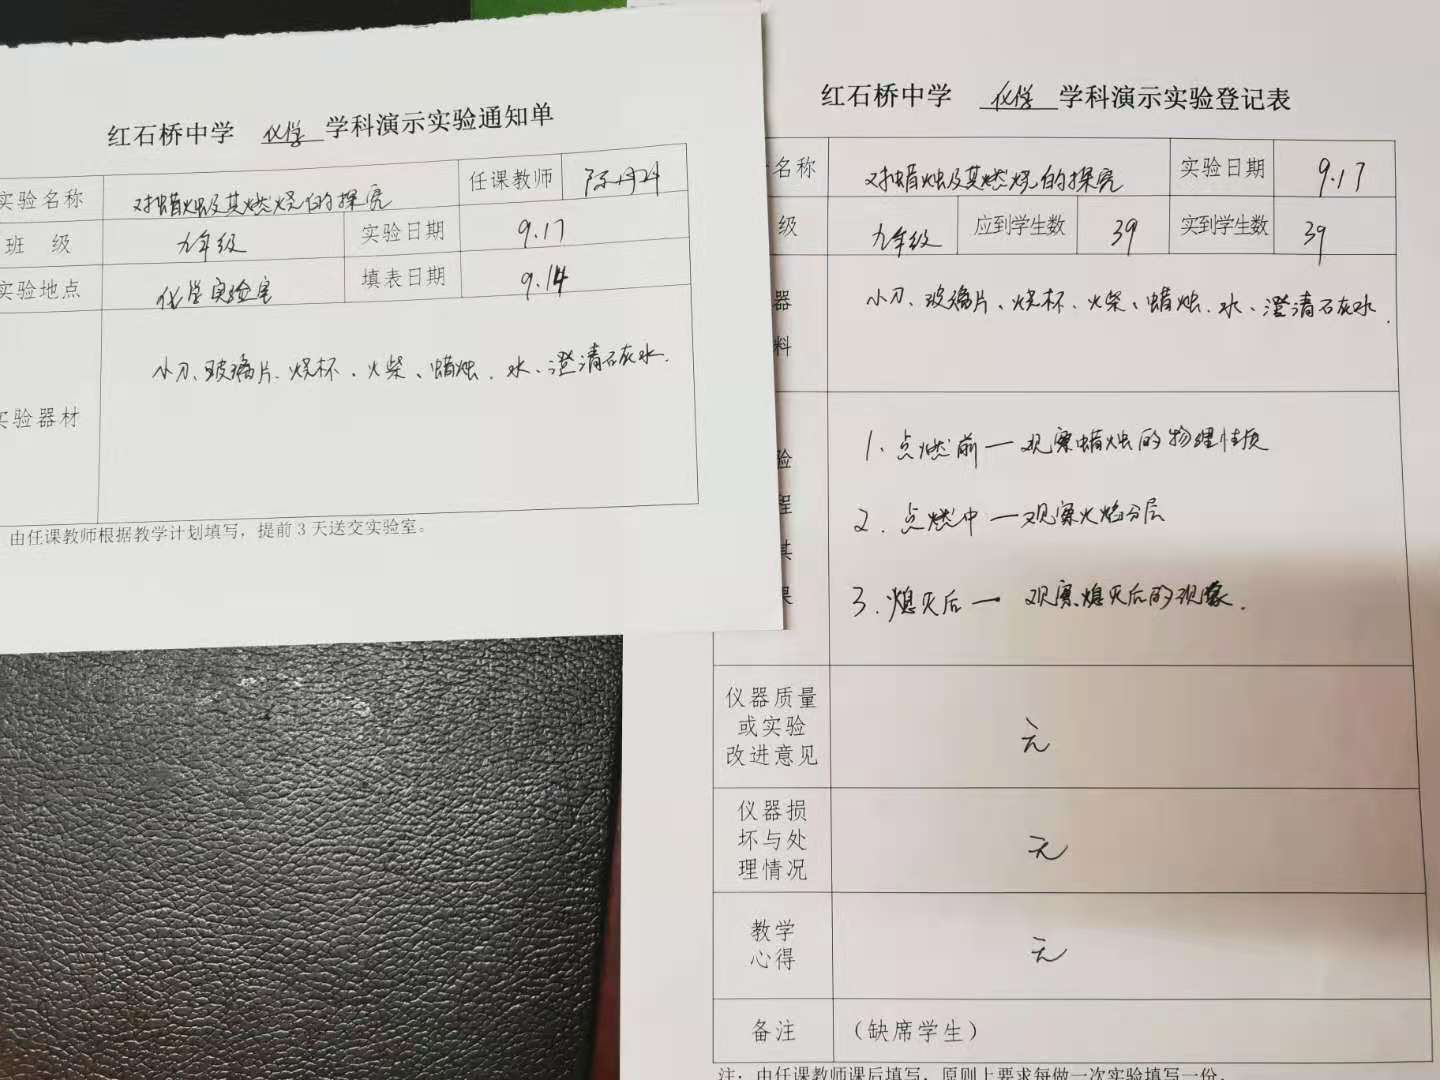 红石桥中学 化学 学科演示实验通知单
实验名称 对蜡烛及其燃烧的探究 任课教师
班 级 九年级 实验日期 9.17
实验地点 化学实验室 填表日期 9.14
实验器材 小刀、玻璃片、烧杯、火柴、蜡烛、水、澄清石灰水.
由任课教师根据教学计划填写，提前3天送交实验室。
红石桥中学 化学 学科演示实验登记表
名称 对蜡烛及其燃烧的探究 实验日期 9.17
级 九年级 应到学生数 39 实到学生数 39
器
料
小刀、玻璃片、烧杯、火柴、蜡烛、水、澄清石灰水.
验
程
其
果
1. 点燃前—观察蜡烛的物理性质
2. 点燃中—观察火焰分层
3. 熄灭后— 观察熄灭后的现象.
仪器质量
或实验
改进意见
无
仪器损
坏与处
理情况
无
教学
心得
无
备注 （缺席学生）
注：由任课教师课后填写，原则上要求每做一次实验填写一份。